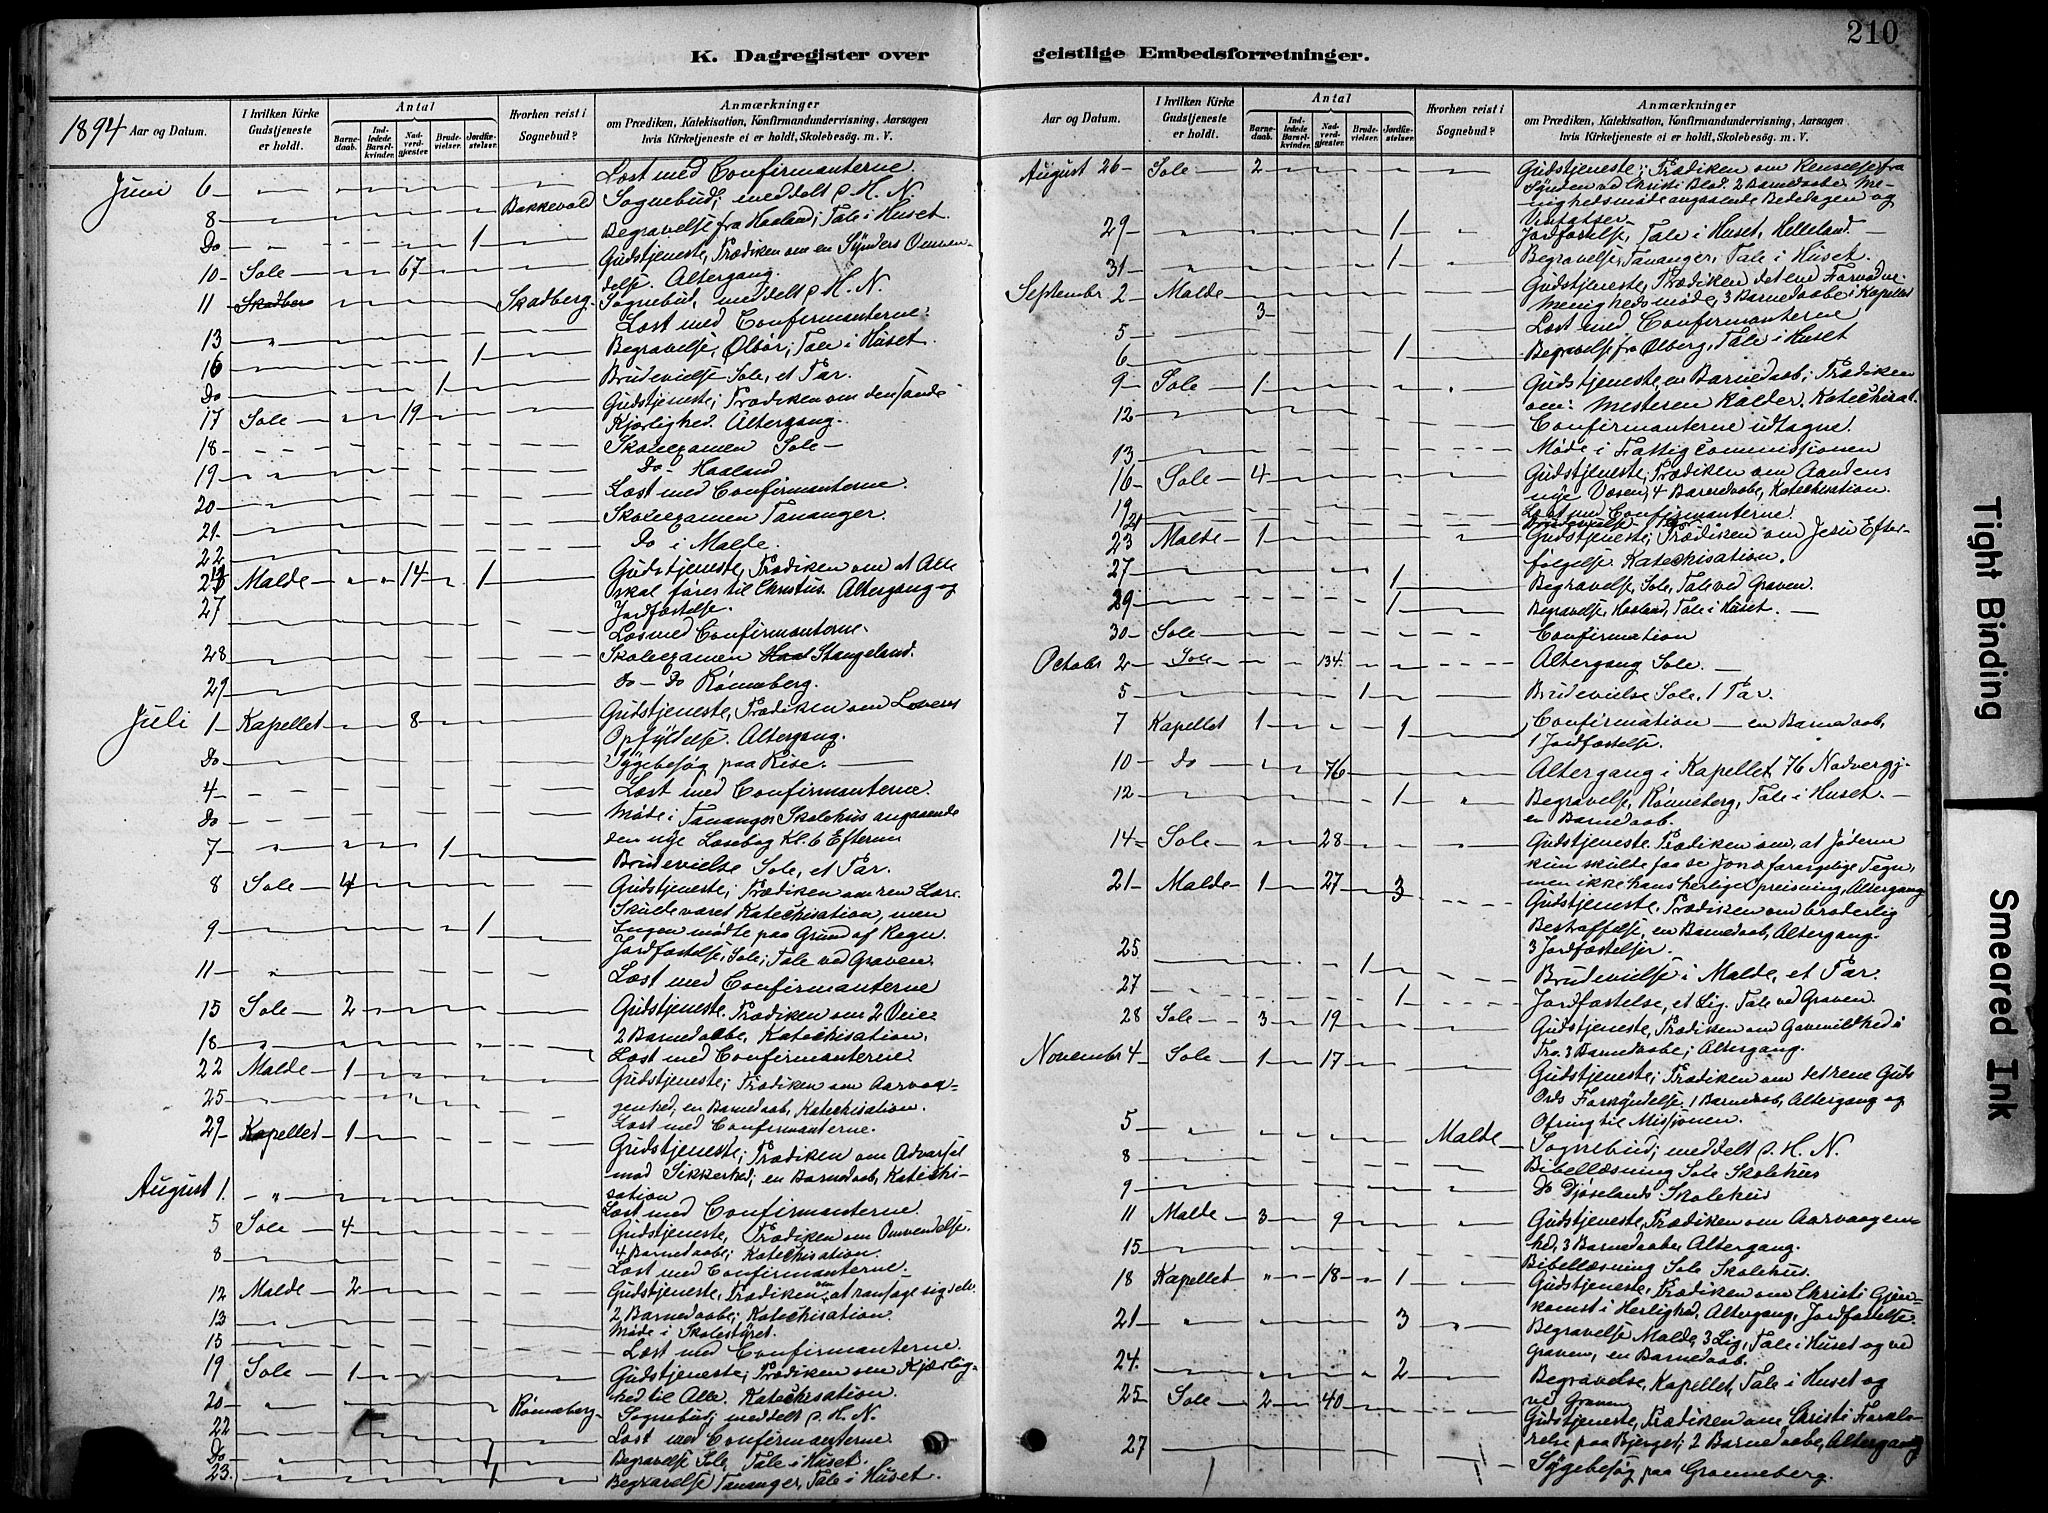 210
K. Dagregister over geistlige Embedsforretninger.
1894
Aar og Datum.
I hvilken Kirke Gudstjeneste er holdt.
Antal
Barnedaab.
Indledede Barselkvinder.
Nadverdgjester.
Brudevielser.
Jordfæstelser.
Hvorhen reist i Sognebud?
Anmærkninger
om Prædiken, Katekisation, Konfirmandundervisning, Aarsagen
hvis Kirketjeneste ei er holdt, Skolebesög. m. V.
Juni 6 Læst med Confirmanterne.
8 Bakkevold Sognebud; meddelt d. H. N.
Do 1 Begravelse fra Haaland; Tale i Huset.
10 Sole 67 Gudstjeneste, Prædiken om en Synders Omven-
delse. Altergang.
11 Skadberg Sognebud, meddelt d. H. N.
13 Læst med Confirmanterne.
16 1 Begravelse, Ølbör; Tale i Huset.
Do 1 Brudevielse Sole, et Par.
17 Sole 19 Gudstjeneste; Prædiken om den sande
Kjærlighed. Altergang.
18 Skoleexamen Sole
19 Do Haaland
20 Læst med Confirmanterne.
21 Skoleexamen Tananger.
22 Do i Malde.
24 Malde 14 1 Gudstjeneste, Prædiken om at Alle
skal føres til Christus. Altergang og
Jordfæstelse.
27 Læs med Confirmanterne.
28 Skoleexamen Stangeland.
29 Do Do Rønneberg.
Juli 1 Kapellet 8 Gudstjeneste, Prædiken om Lovens
Opfyldelse. Altergang.
Do Sygebesøg paa Rise.
4 Læst med Confirmanterne.
Do Møde i Tananger Skolehus angaaende
den nye Læsebog Kl. 6 Efterm
7 1 Brudevielse Sole, et Par.
8 Sole 4 Gudstjeneste; Prædiken om ren Lære.
Skulde været Katechisation, men
Ingen mødte paa Grund af Regn.
9 1 Jordfæstelse, Sole; Tale ved Graven.
11 Læst med Confirmanterne
15 Sole 2 Gudstjeneste. Prædiken om 2 Veie.
2 Barnedaabe, Katechisation.
18 Læst med Confirmanterne.
22 Malde 1 Gudstjeneste; Prædiken om Aarvaa-
genhed, en Barnedaab, Katechisation.
25 Læst med Confirmanterne.
29 Kapellet 1 Gudstjeneste; Prædiken om Advarsel
mod Sikkerhed; en Barnedaab, Katechi-
sation
August 1. Læst med Confirmanterne.
5 Sole 4 Gudstjeneste, Prædiken om Omvendelse.
4 Barnedaabe; Katechisation.
8 Læst med Confirmanterne.
12 Malde 2 Gudstjeneste, Prædiken om at ransage sig selv.
2 Barnedaabe; Katechisation.
13 Møde i Skolestyret.
15 Læst med Confirmanterne.
19 Sole 1 Gudstjeneste; Prædiken om Kjærlig-
hed til Alle. Katechisation.
20 Rønneberg Sognebud; meddelt d. H. N.
22 Læst med Confirmanterne.
Do 1 Begravelse Sole, Tale i Huset.
23. 1 Begravelse Tananger, Tale i Huset.
Aar og Datum.
I hvilken Kirke Gudstjeneste er holdt.
Antal
Barnedaab.
Indledede Barselkvinder.
Nadverdgjester.
Brudevielser.
Jordfæstelser.
Hvorhen reist i Sognebud?
Anmærkninger
om Prædiken, Katekisation, Konfirmandundervisning, Aarsagen
hvis Kirketjeneste ei er holdt, Skolebesög. m. V.
August 26 Sole 2 Gudstjeneste; Prædiken om Renselse fra
Synden ved Christi Blod. 2 Barnedaabe; Me-
nighedsmøde angaaende Bededagen og
29 1 Jordfæstelse, Tale i Huset, Helleland.
31 1 Begravelse, Tananger, Tale i Huset.
Septembr 2 Malde 3 Gudstjeneste, Prædiken det ene Fornødne.
Menighedsmøde, 3 Barnedaabe i Kapellet
5 Læst med Confirmanterne
6 1 Begravelse fra Ølberg, Tale i Huset
9 Sole 1 Gudstjeneste, en Barnedaab; Prædiken
om: Mesteren kalder. Katechisat.
12 Confirmanterne udtagne.
13 Møde i Fattigcommissionen
16 Sole 4 Gudstjeneste, Prædiken om Aandens
nye Væsen, 4 Barnedaabe, Katechisation.
19 Læst med Confirmanterne.
21 Brudevielse
23 Malde 1 Gudstjeneste; Prædiken om Jesu Efter-
følgelse. Katechisation.
27 1 Begravelse, Sole, Tale ved Graven.
29 1 Begravelse, Haaland, Tale i Huset.
30 Sole Confirmation
Octobr 2 Sole 134 Altergang Sole.
5 1 Brudevielse Sole, 1 Par.
7 Kapellet 1 1 Confirmation en Barnedaab,
1 Jordfæstelse.
10 Do 76 Altergang i Kapellet, 76 Nadvergj.
12 1 Begravelse, Rønneberg, Tale i Huset.
en Barnedaab.
14 Sole 28 Gudstjeneste. Prædiken om, at Jøderne
kun skulde faa se Jonæ Tegn,
men ikke hans herlige Opreisning, Altergang
21 Malde 1 27 3 Gudstjeneste, Prædiken om broderlig
Bestraffelse, en Barnedaab, Altergang.
3 Jordfæstelser.
25 1 Brudevielse i Malde, et Par.
27 1 Jordfæstelse, et Lig. Tale ved Graven.
28 Sole 3 19 Gudstjeneste, Prædiken om Gavmildhed i
Tro. 3 Barnedaabe; Altergang.
Novembr 4 Sole 1 17 Gudstjeneste; Prædiken om det rene Guds
Ords Forkyndelse. 1 Barnedaab, Altergang og
Ofring til Missjonen.
5 Malde Sognebud; meddelt d. H. N.
8 Bibellæsning Sole Skolehus
9 Do Skolehus
11 Malde 3 9 Gudstjeneste, Prædiken om Aarvaagen-
hed, 3 Barnedaabe, Altergang.
15 Bibellæsning Sole Skolehus.
18 Kapellet 18 1 Gudstjeneste, Prædiken om Christi Gjen-
komst i Herlighed, Altergang, Jordfæstelse
21 3 Begravelse Malde, 3 Lig, Tale i Huset og ved
Graven, en Barnedaab.
24. 2 Begravelse, Kapellet, Tale i Huset og
ved Graven
25 Sole 2 40 Gudstjeneste, Prædiken om Christi Forkla-
relse paa Bjerget; 2 Barnedaabe, Altergang
27 Sygebesøg paa Grønneberg.
Tight Binding
Smeared Ink